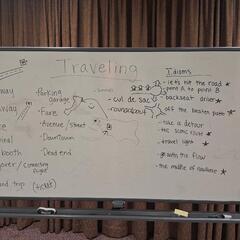 Traveling
Idioms
- let's hit the road
point A to point B
- backseat driver
- off the beaten path
- take a detour
- the scenic route
- travel light
with the flow
- the middle of nowhere
- cul de sac
- roundabout
- Parking
garage
- Fare
- Avenue/street
- Downtown
- Dead end
way
way
booth
over/connecting
flight
nd trip (ticket)